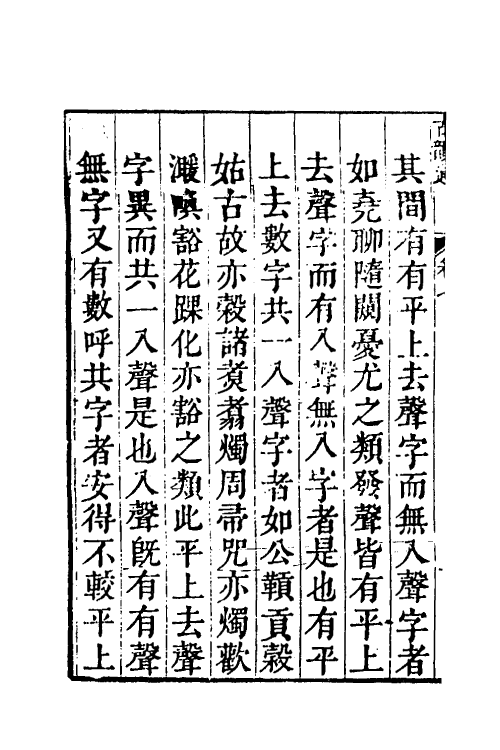 其間有有平上去聲字而無入聲字者
如堯聊隨闕憂尤之類發聲皆有平上
去聲字而有入聲無入字者是也有平
上去數字共一入聲字者如公顆貢榖
姑古故亦榖諸煑翥燭周帚咒亦燭歡
緩喚豁花踝化亦豁之類此平上去聲
字異而共一入聲是也入聲旣有有聲
無字又有數呼共字者安得不較平上